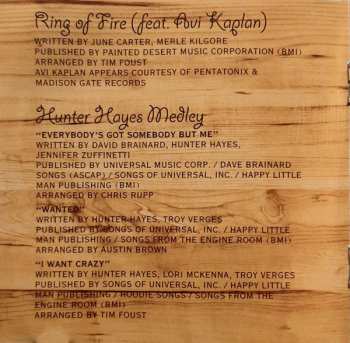 Ring of Fire (feat. Avi Kaplan)
WRITTEN BY JUNE CARTER, MERLE KILGORE
PUBLISHED BY PAINTED DESERT MUSIC CORPORATION (BMI)
ARRANGED BY TIM FOUST
AVI KAPLAN APPEARS COURTESY OF PENTATONIX &
MADISON GATE RECORDS
Hunter Hayes Medley
"EVERYBODY'S GOT SOMEBODY BUT ME"
WRITTEN BY DAVID BRAINARD, HUNTER HAYES,
JENNIFER ZUFFINETTI
PUBLISHED BY UNIVERSAL MUSIC CORP. / DAVE BRAINARD
SONGS (ASCAP) / SONGS OF UNIVERSAL, INC. / HAPPY LITTLE
MAN PUBLISHING (BMI)
ARRANGED BY CHRIS RUPP
"WANTED"
WRITTEN BY HUNTER HAYES, TROY VERGES
PUBLISHED BY SONGS OF UNIVERSAL, INC. / HAPPY LITTLE
MAN PUBLISHING / SONGS FROM THE ENGINE ROOM (BMI)
ARRANGED BY AUSTIN BROWN
"I WANT CRAZY"
WRITTEN BY HUNTER HAYES, LORI MCKENNA, TROY VERGES
PUBLISHED BY SONGS OF UNIVERSAL, INC. / HAPPY LITTLE
MAN PUBLISHING / HOODIE SONGS / SONGS FROM THE
ENGINE ROOM (BMI)
ARRANGED BY TIM FOUST